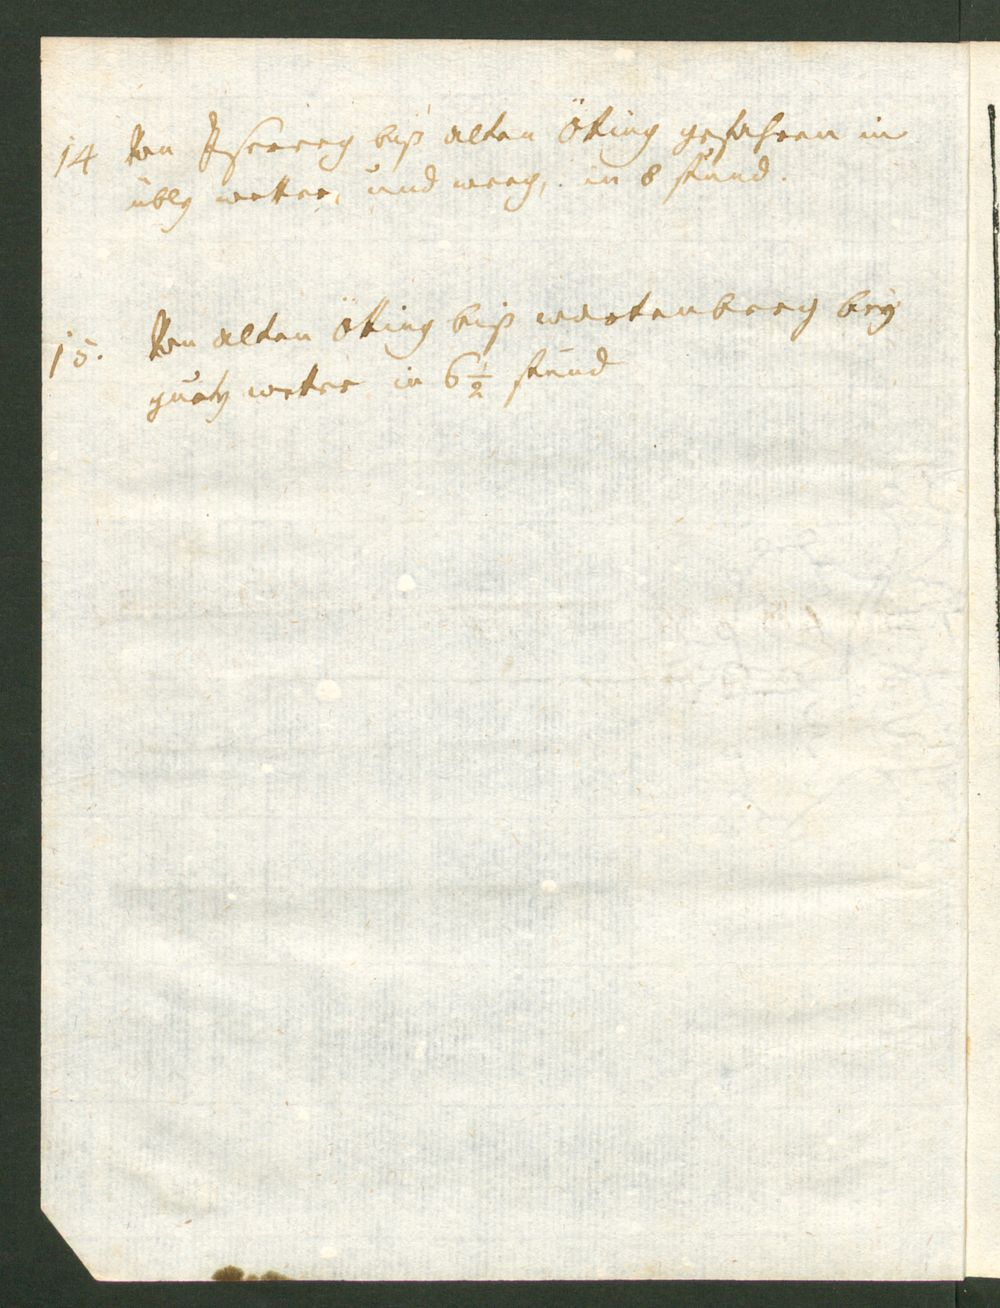 14 Von biß alten Öting gefahren in
übly wetter, und weeg, in 8 stund.
15. Von alten Öting biß wartenberg bey
guety wetter in 6 1/2 stund